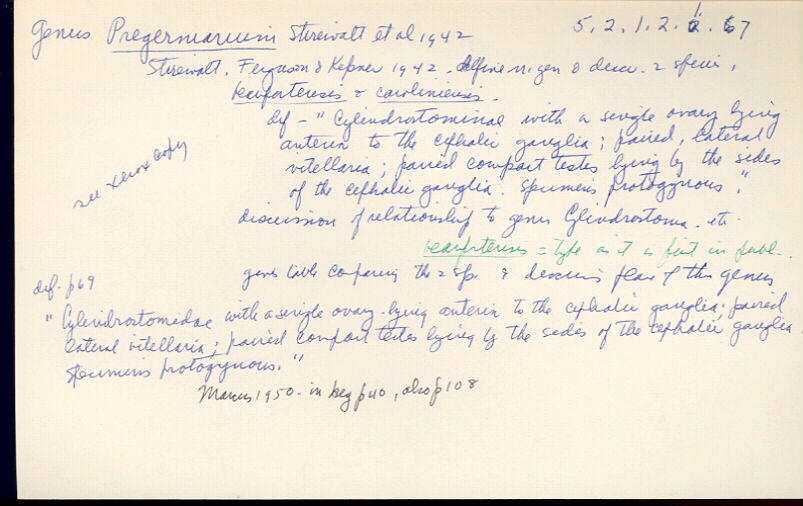 Genus Pregermarium Stirewalt et al 1942
5.2.1.2.6.67
Stirewalt, Ferguson & Kepner 1942. define n. gen & descr. 2 species,
beaufortensis & caroliniensis.
def - "Cylindrostominae with a single ovary lying
anterior to the cephalic ganglia; paired, lateral
vitellaria; paired compact testes lying by the sides
of the cephalic ganglia. Specimens protogynous".
see xerox copy
discussion of relationship to genus Cylindrostoma. etc.
beaufortensis = type as it is first in publ..
gives table comparing the 2 sps & discuss place of this genus
def. p69
"Cylindrostomidae with a single ovary lying anterior to the cephalic ganglia; paired
lateral vitellaria; paired compact testes lying by the sides of the cephalic ganglia.
Specimens protogynous."
Marcus 1950 - in key p40, also p108